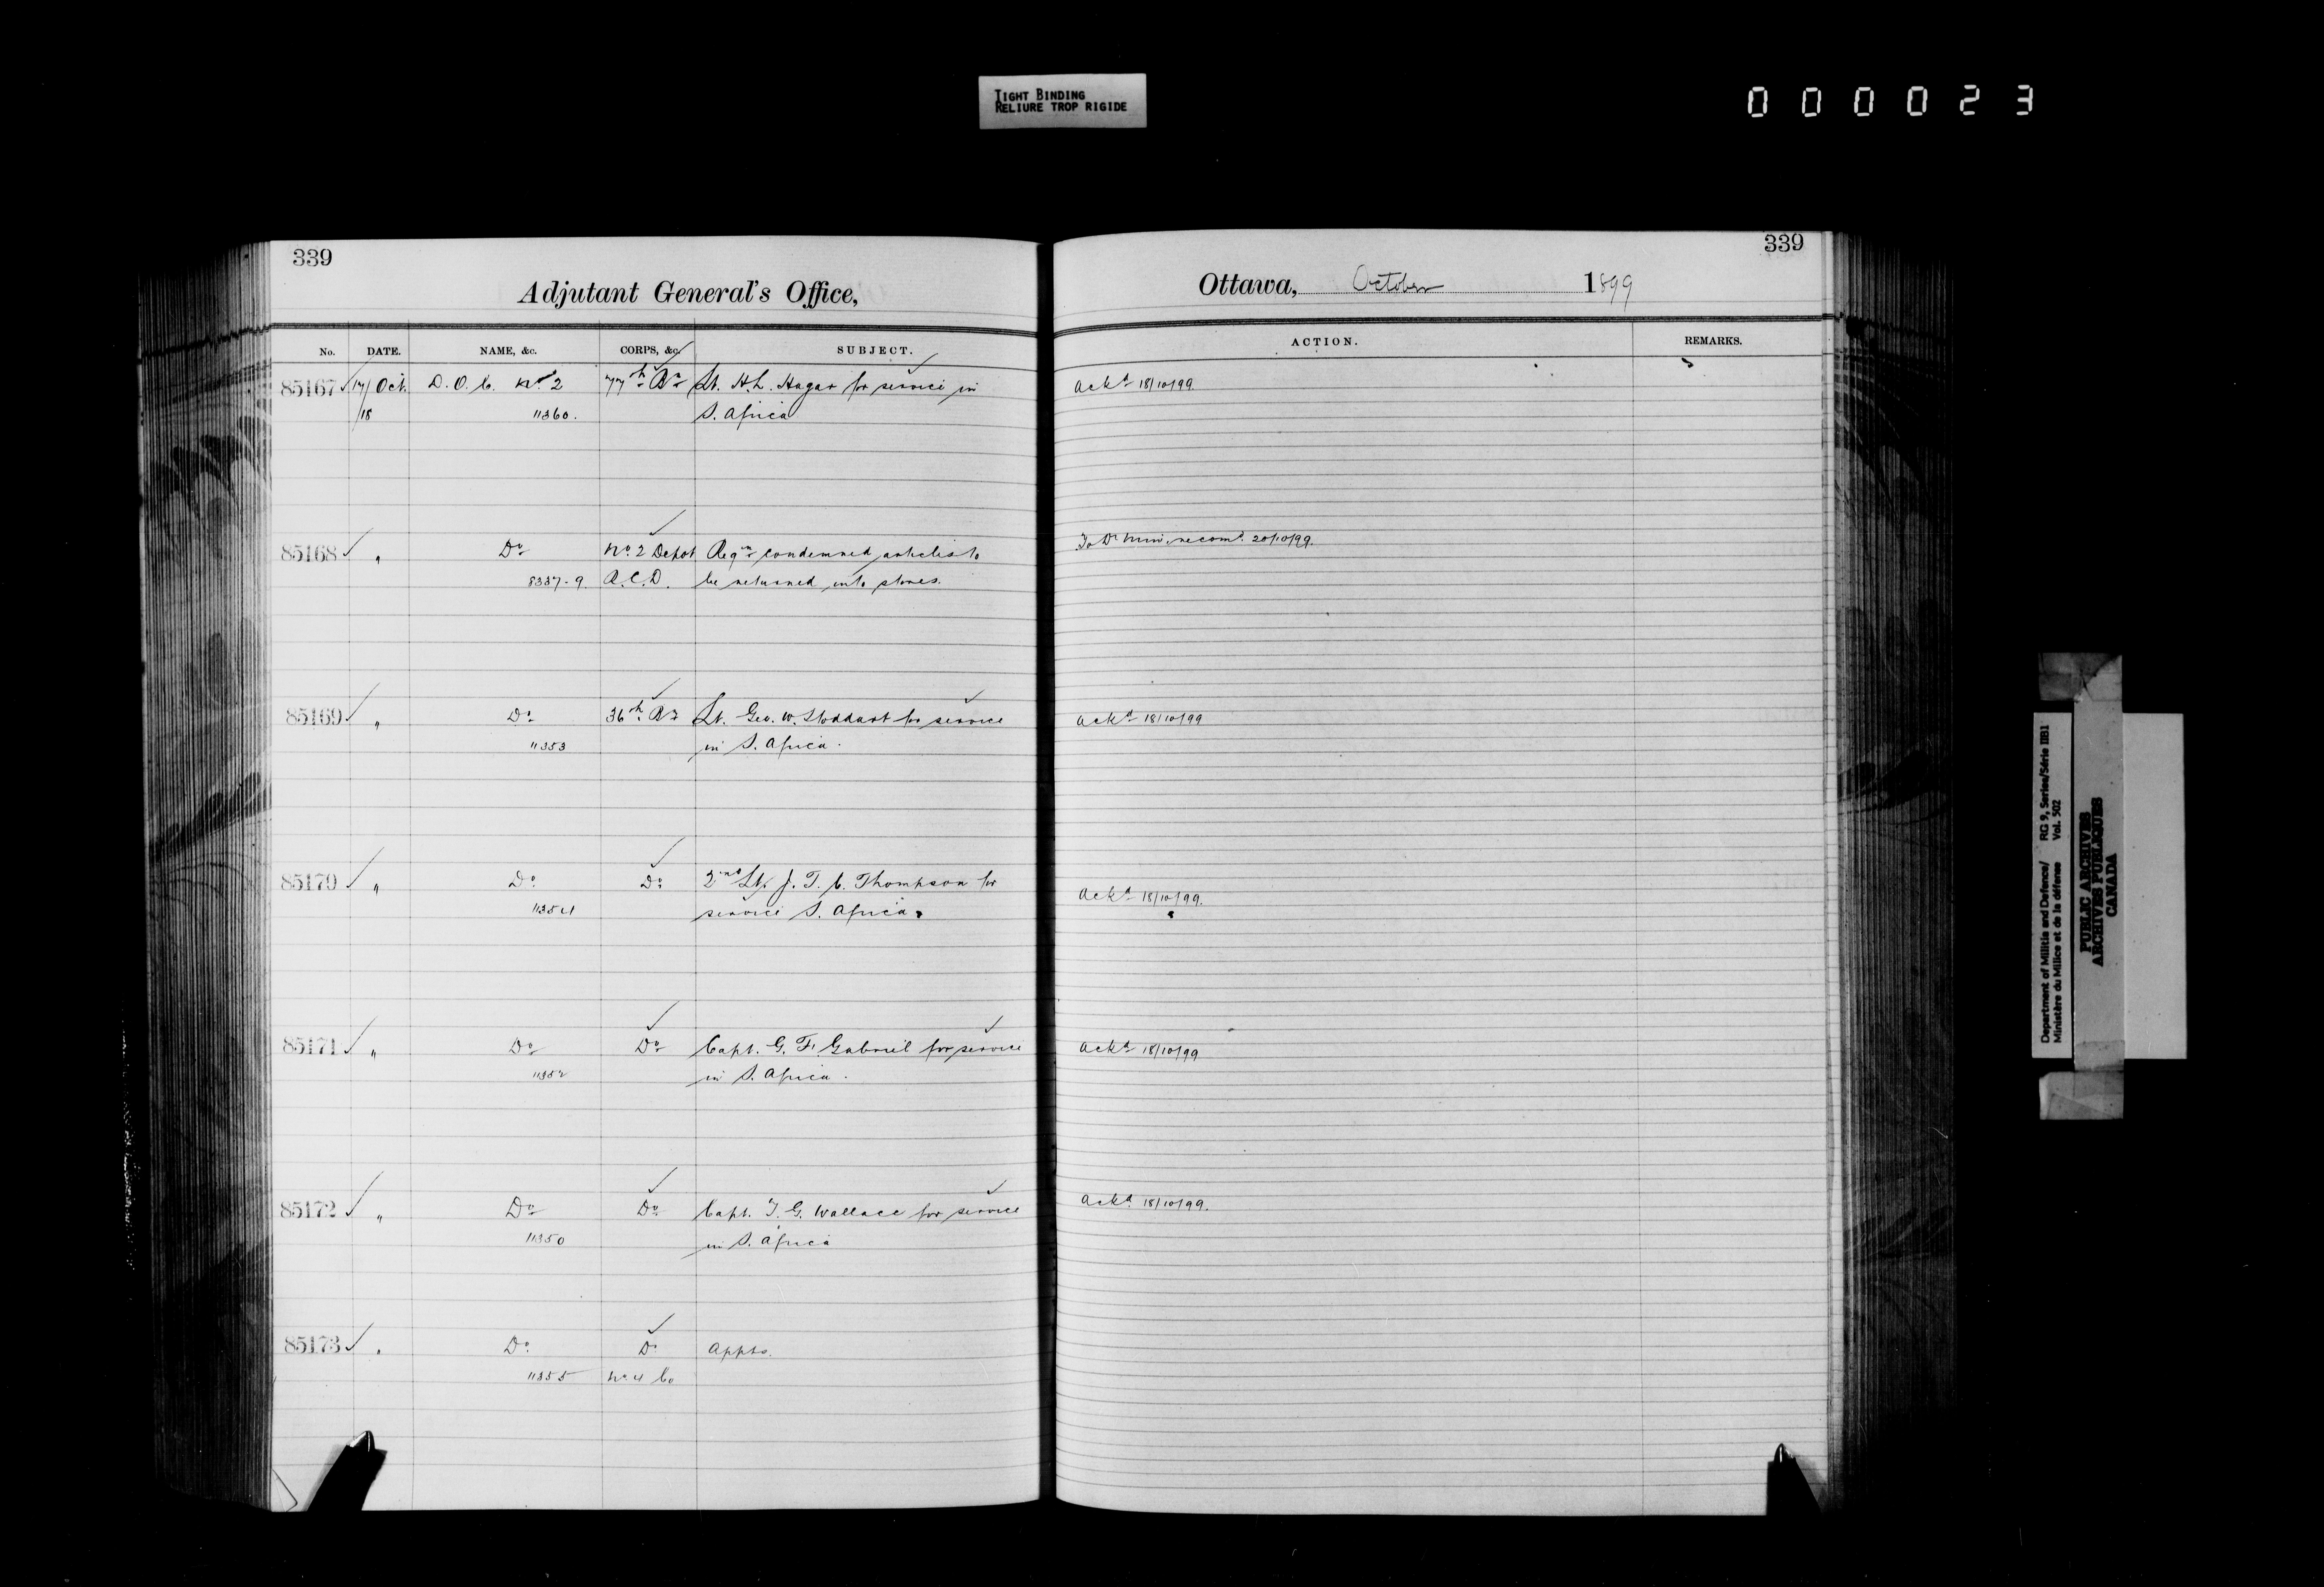 TIGHT BINDING
RELIURE TROP RIGIDE
0 0 0 0 2 3
339
Adjutant General's Office,
No. DATE. NAME, &c. CORPS, &c. SUBJECT.
85167 ✓ 17/ Oct. D.O.C. No. 2 77th Bn Lt. H.L. Hagar for service in
/18 11360. S. Africa
85168 ✓ " Do No. 2 Depot Reqn condemned articles to
8337-9. A.C.D. be returned into stores.
85169 ✓ " Do 36th Bn Lt. Geo. W. Stoddart for service
11353 in S. Africa.
85170 ✓ " Do Do 2nd Lt. J. T. C. Thompson for
11354 service S. Africa.
85171 ✓ " Do Do Capt. G. F. Gabriel for service
11352 in S. Africa.
85172 ✓ " Do Do Capt. T. G. Wallace for service
11350 in S. Africa
85173 ✓ " Do Do Appts.
11355 No. 4 Co
339
Ottawa, October 1899
ACTION. REMARKS.
Ackd 18/10/99.
To Dr Min. recomd. 20/10/99.
Ackd 18/10/99
Ackd 18/10/99.
Ackd 18/10/99
Ackd. 18/10/99.
Department of Militia and Defence/ RG 9, Series/Série IIB1
Ministère du Milice et de la défense Vol. 502
PUBLIC ARCHIVES
ARCHIVES PUBLIQUES
CANADA